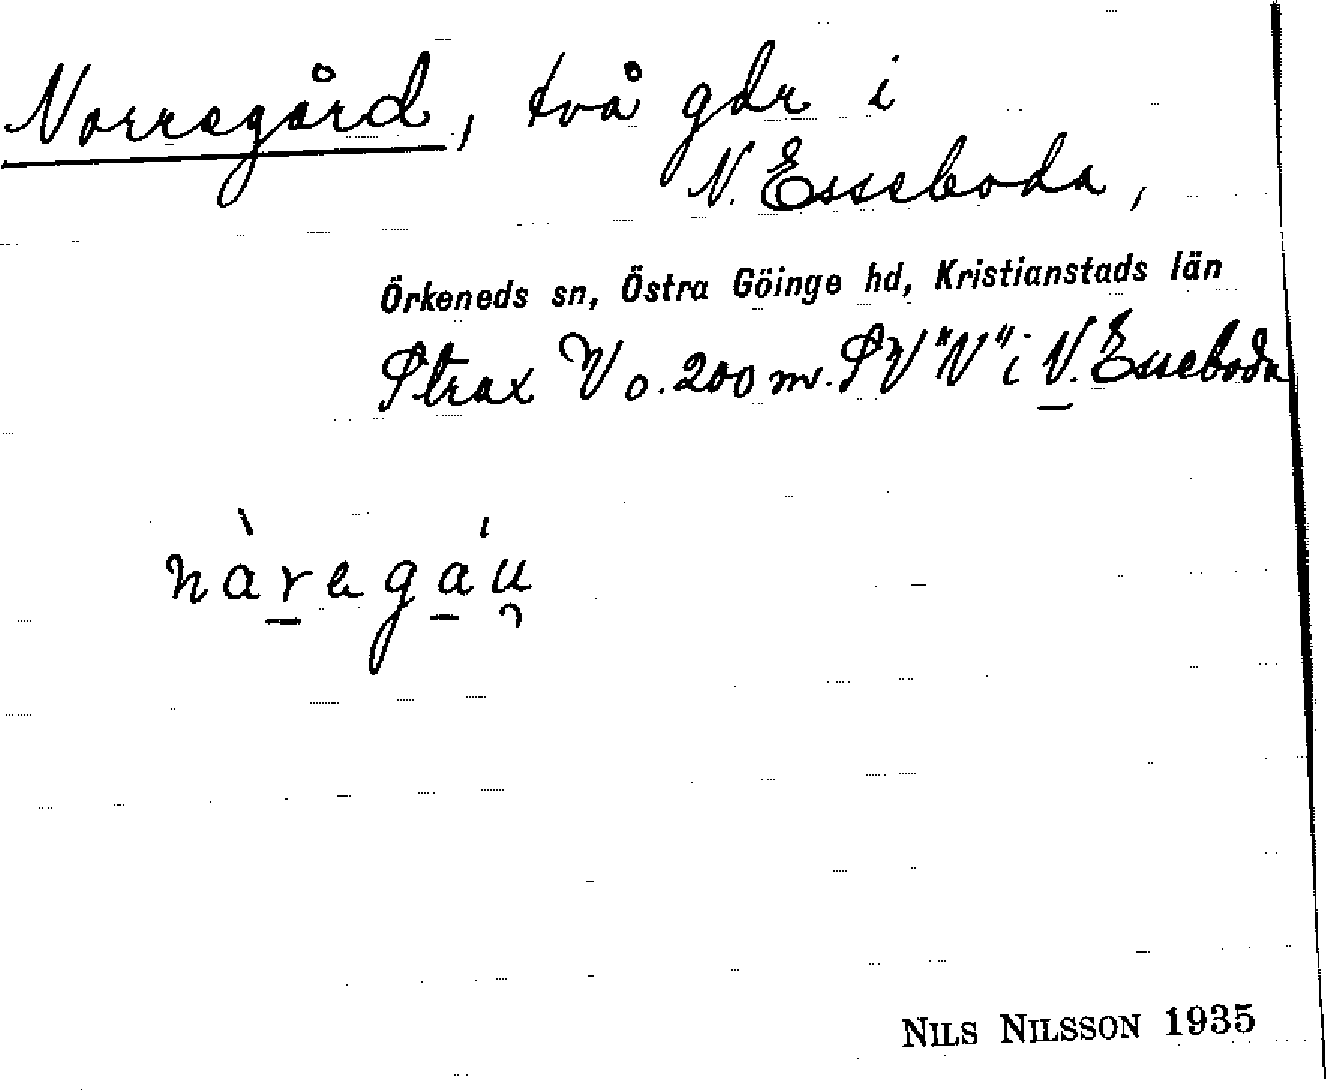 Norregård, två gdr i
N. Esseboda,
Örkeneds sn, Östra Göinge hd, Kristianstads län
Strax V o. 200 m. SV "N" i N. Esseboda
nàregáu̯
NILS NILSSON 1935